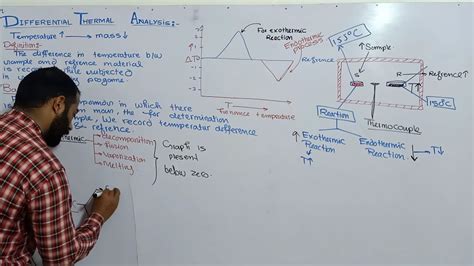 DIFFERENTIAL THERMAL ANALYSIS:-
Temperature↑ → mass↓
Definition:-
The difference in temperature b/w
sample and refrence material
is record while subjecte
progame.
in which there
for determination
ample, We record temmperatur difference
& refrence.
thermic
Decomposition
Fusion
Vaporization
Melting
Graph is
present
below zero.
For exothermic
Reaction
Endothermic
process
ΔT
Refrence
Furnnce temperature
153°C
Sample
S
R
Refrence
150°C
Thermocouple
Reaction
↑ Exothermic
Reaction
T↑
Endothermic
Reaction
T↓